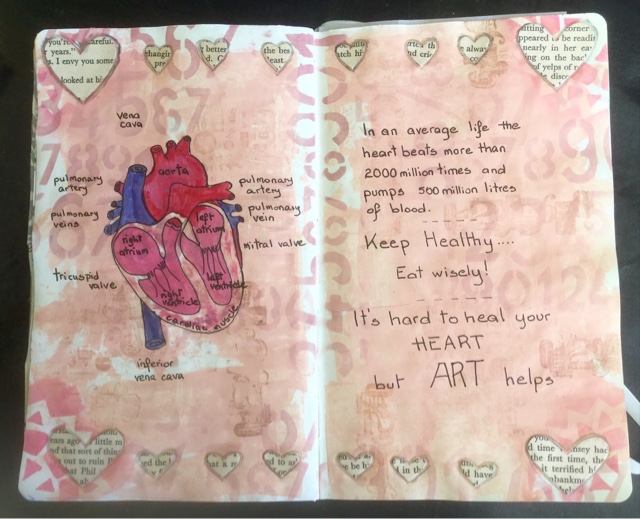 you're areful.
years."
. I envy you some
looked at hi
hangi
better
d. G
the bes
least
tch hi
nd crie
alway
itting corner
ppeared to be readi
nearly in her ea
ng on the bac
of yelps of r
he disco
vena
cava
aorta
pulmonary
artery
pulmonary
artery
pulmonary
veins
pulmonary
vein
left
atrium
right
atrium
mitral valve
tricuspid
valve
left
ventricle
right
ventricle
cardiac muscle
inferior
vena cava
In an average life the
heart beats more than
2000 million times and
pumps 500 million litres
of blood.
Keep Healthy....
Eat wisely!
It's hard to heal your
HEART
but ART helps
ears ago little m
nd that sort of thin
out to ruin I
at Phil
ed the
at a r
d to a
be h
d in th
ld have
you
d time msey hac
the first time, the
it terrified h
bankm